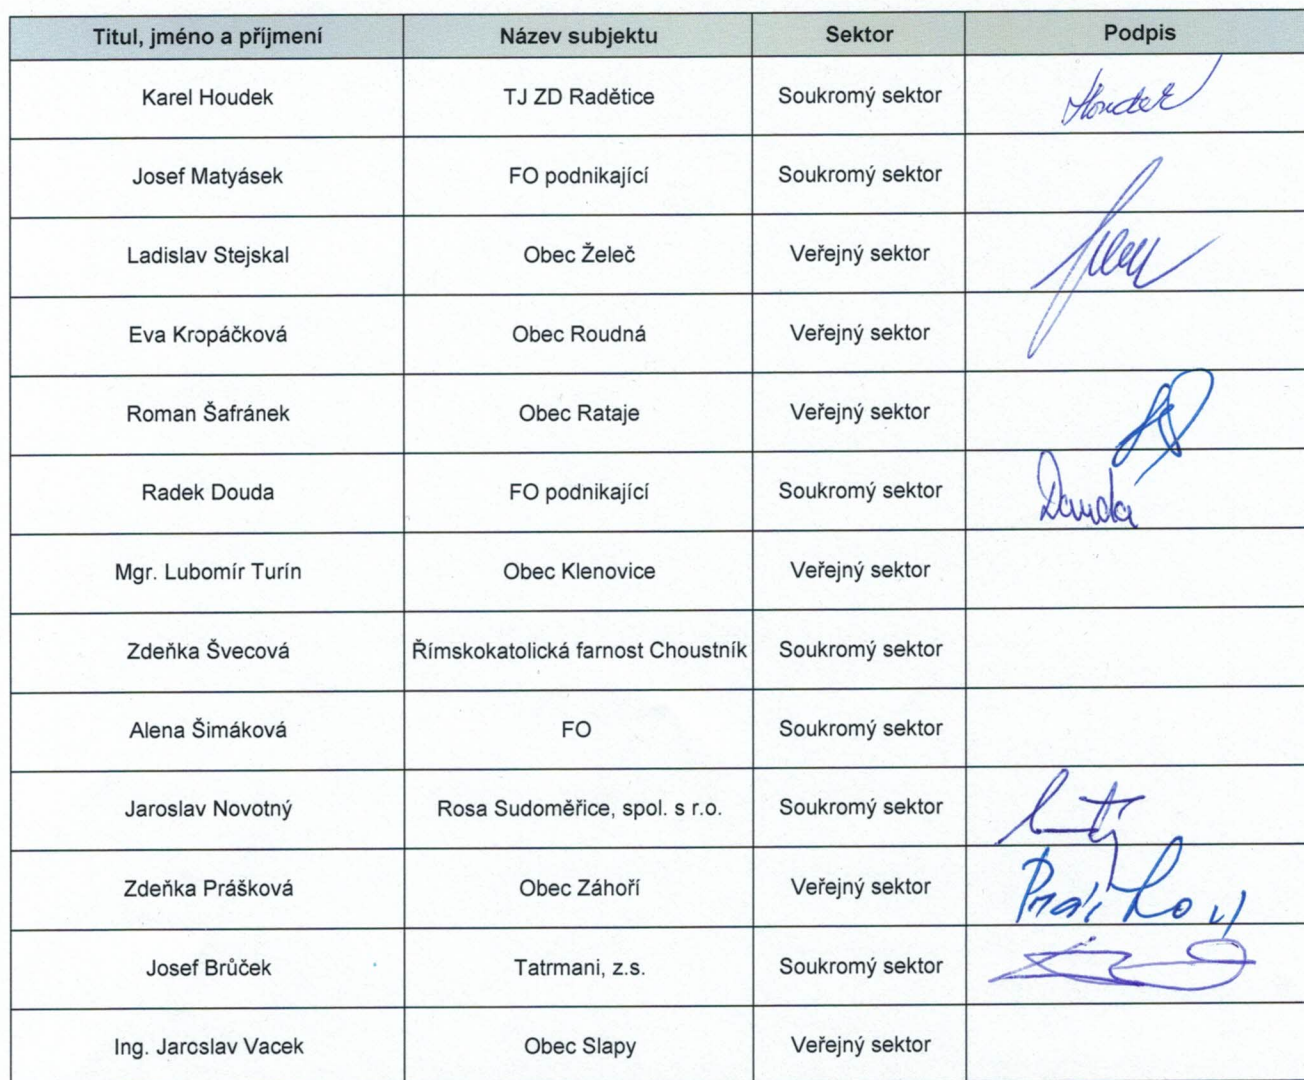 Titul, jméno a příjmení Název subjektu Sektor Podpis
Karel Houdek TJ ZD Radětice Soukromý sektor Houdek
Josef Matyásek FO podnikající Soukromý sektor
Ladislav Stejskal Obec Želeč Veřejný sektor
Eva Kropáčková Obec Roudná Veřejný sektor
Roman Šafránek Obec Rataje Veřejný sektor
Radek Douda FO podnikající Soukromý sektor Douda
Mgr. Lubomír Turín Obec Klenovice Veřejný sektor
Zdeňka Švecová Římskokatolická farnost Choustník Soukromý sektor
Alena Šimáková FO Soukromý sektor
Jaroslav Novotný Rosa Sudoměřice, spol. s r.o. Soukromý sektor
Zdeňka Prášková Obec Záhoří Veřejný sektor Prášková
Josef Brůček Tatrmani, z.s. Soukromý sektor
Ing. Jaroslav Vacek Obec Slapy Veřejný sektor